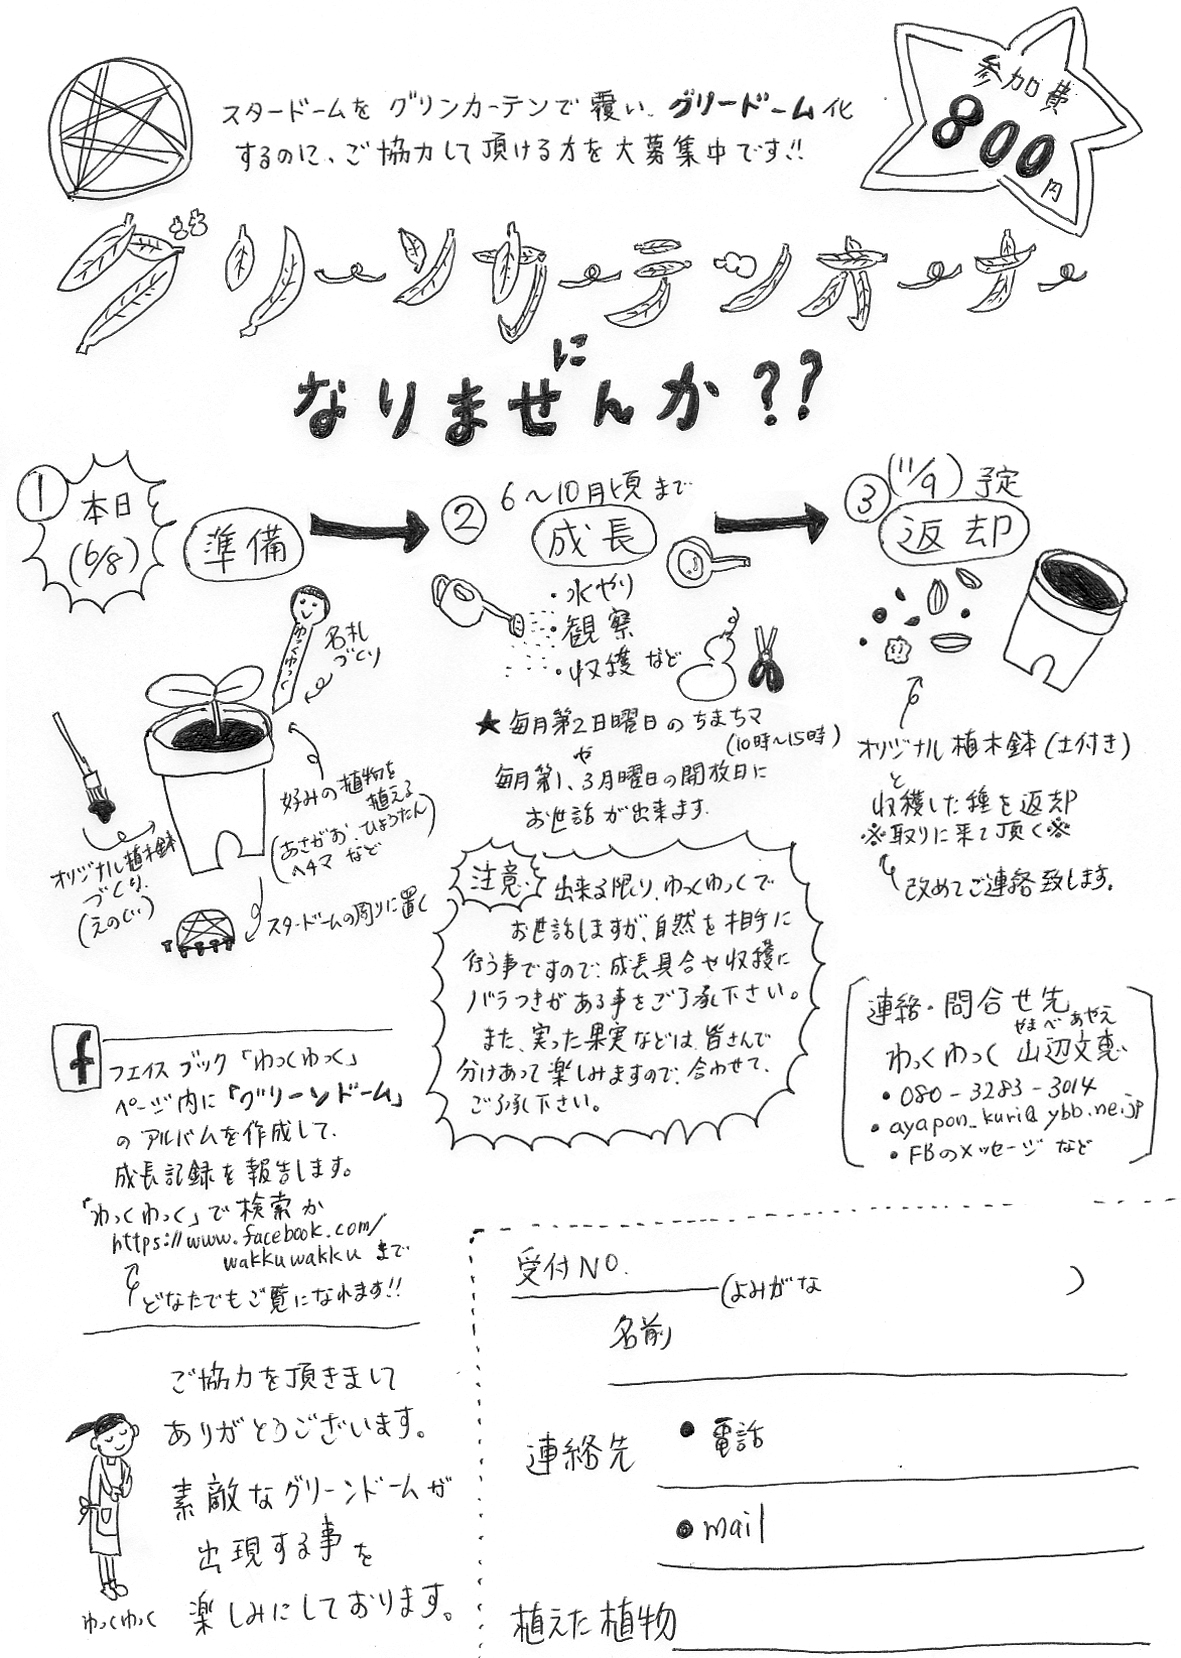 参加費
800円
スタードームをグリンカーテンで覆い、グリードーム化
するのに、ご協力して頂ける方を大募集中です!!
グリーンカーテンオーナー
に
なりませんか??
① 本日
(6/8)
準備
② 6〜10月頃まで
成長
・水やり
・観察
・収穫 など
③ (11/9) 予定
返却
ゆっくゆっく
名札
づくり
好みの植物を
植える
(あさがお、ひょうたん
ヘチマ など)
オリジナル植木鉢
づくり.
(えのぐ..)
スタードームの周りに置く
★毎月第2日曜日のちまちマ
(10時〜15時)
や
毎月第1、3月曜日の開放日に
お世話が出来ます.
オリジナル植木鉢(土付き)
と
収穫した種を返却
※取りに来て頂く※
改めてご連絡致します。
注意
出来る限り、ゆっくゆっくで
お世話しますが、自然を相手に
行う事ですので、成長具合や収穫に
バラつきがある事をご了承下さい。
また、実った果実などは、皆さんで
分けあって楽しみますので、合わせて、
ご了承下さい。
連絡・問合せ先
やまべ あやえ
ゆっくゆっく 山辺文恵
・080-3283-3014
・ayapon_kuri@ybb.ne.jp
・FBのメッセージ など
f
フェイスブック「ゆっくゆっく」
ページ内に「グリーンドーム」
のアルバムを作成して、
成長記録を報告します。
「ゆっくゆっく」で検索か
https://www.facebook.com/
wakkuwakku まで
どなたでもご覧になれます!!
ご協力を頂きまして
ありがとうございます。
素敵なグリーンドームが
出現する事を
楽しみにしております。
ゆっくゆっく
受付NO.
(よみがな )
名前
連絡先
● 電話
● mail
植えた植物